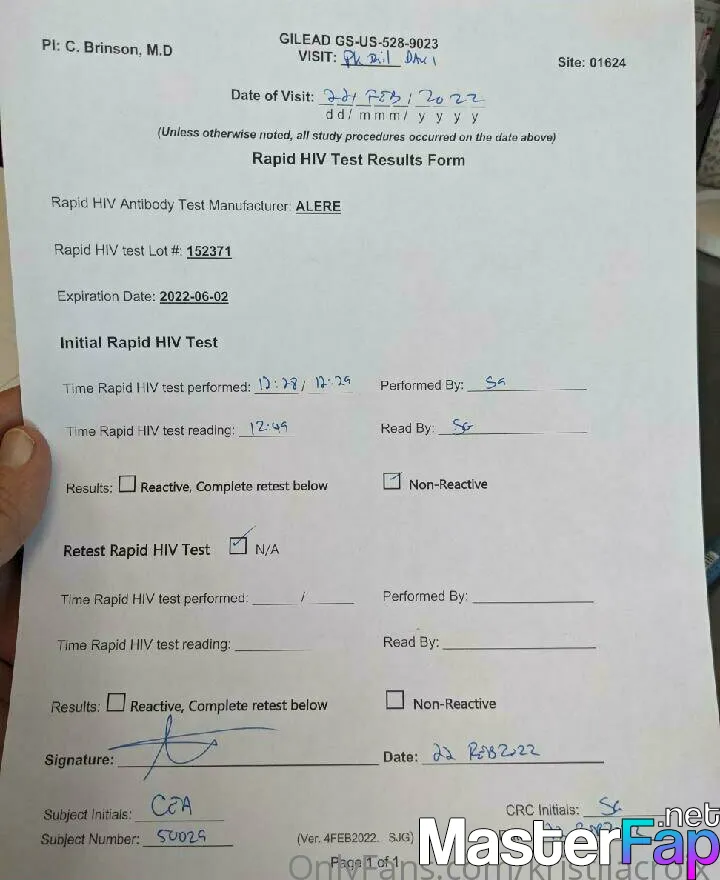 PI: C. Brinson, M.D
GILEAD GS-US-528-9023
VISIT: DAY 1
Site: 01624
Date of Visit: 22/ FEB / 2022
dd/ mmm/ y y y y
(Unless otherwise noted, all study procedures occurred on the date above)
Rapid HIV Test Results Form
Rapid HIV Antibody Test Manufacturer: ALERE
Rapid HIV test Lot #: 152371
Expiration Date: 2022-06-02
Initial Rapid HIV Test
Time Rapid HIV test performed: 12:28/ 12:29 Performed By: SG
Time Rapid HIV test reading: 12:49 Read By: SG
Results: Reactive, Complete retest below Non-Reactive
Retest Rapid HIV Test N/A
Time Rapid HIV test performed: / Performed By:
Time Rapid HIV test reading: Read By:
Results: Reactive, Complete retest below Non-Reactive
Signature: Date: 22 FEB 2022
Subject Initials: CEA CRC Initials: SG
Subject Number: 50029 (Ver. 4FEB2022. SJG)
Page 1 of 1
MasterFap.net
OnlyFans.com/kristilacroix